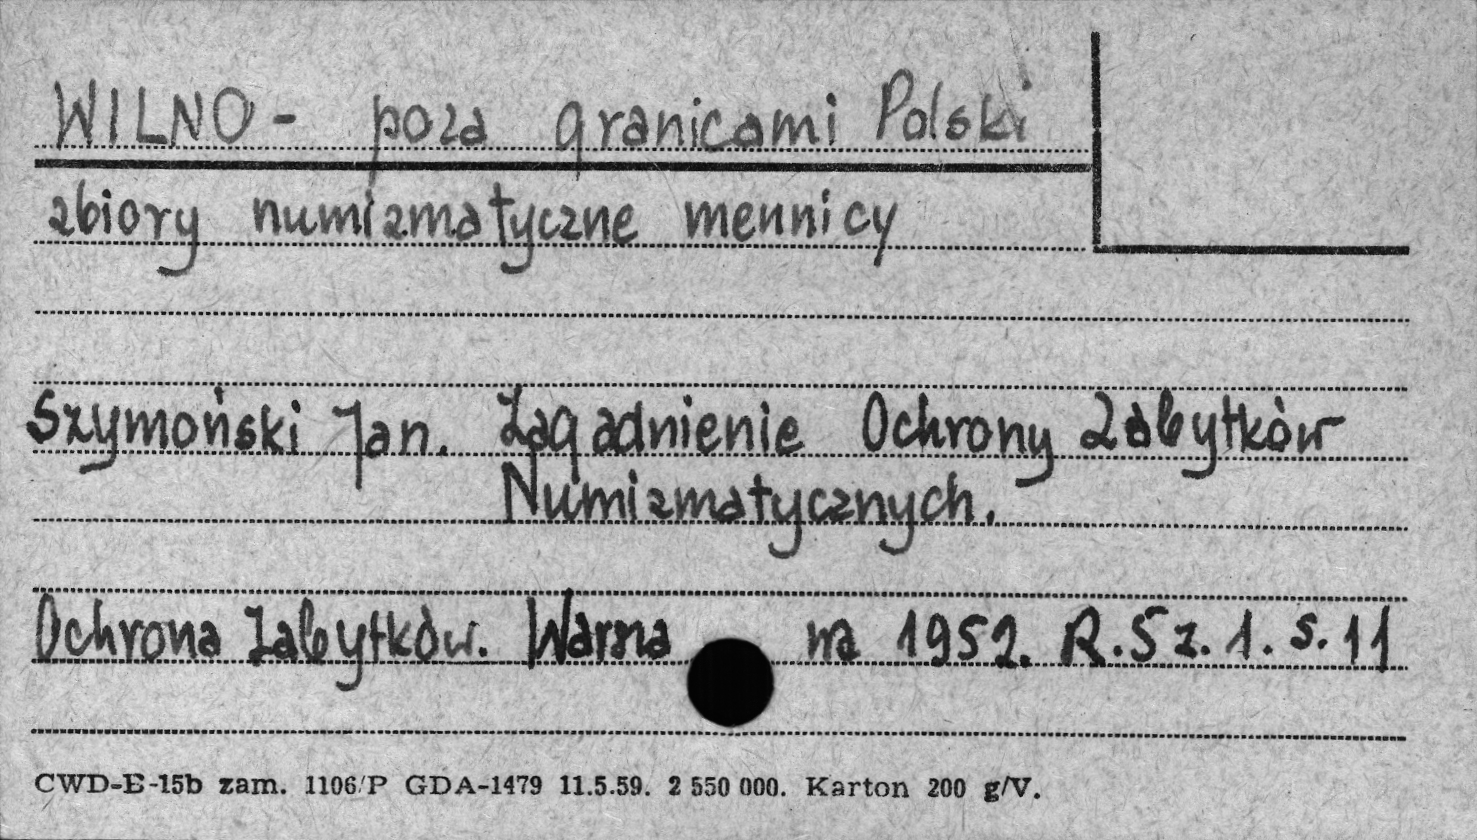 WILNO - poza granicami Polski
zbiory numizmatyczne mennicy
Szymoński Jan. Zagadnienie Ochrony Zabytków
Numizmatycznych.
Ochrona Zabytków. Warsza wa 1952. R.5 z. 1. s. 11
CWD-E-15b zam. 1106/P GDA-1479 11.5.59. 2 550 000. Karton 200 g/V.